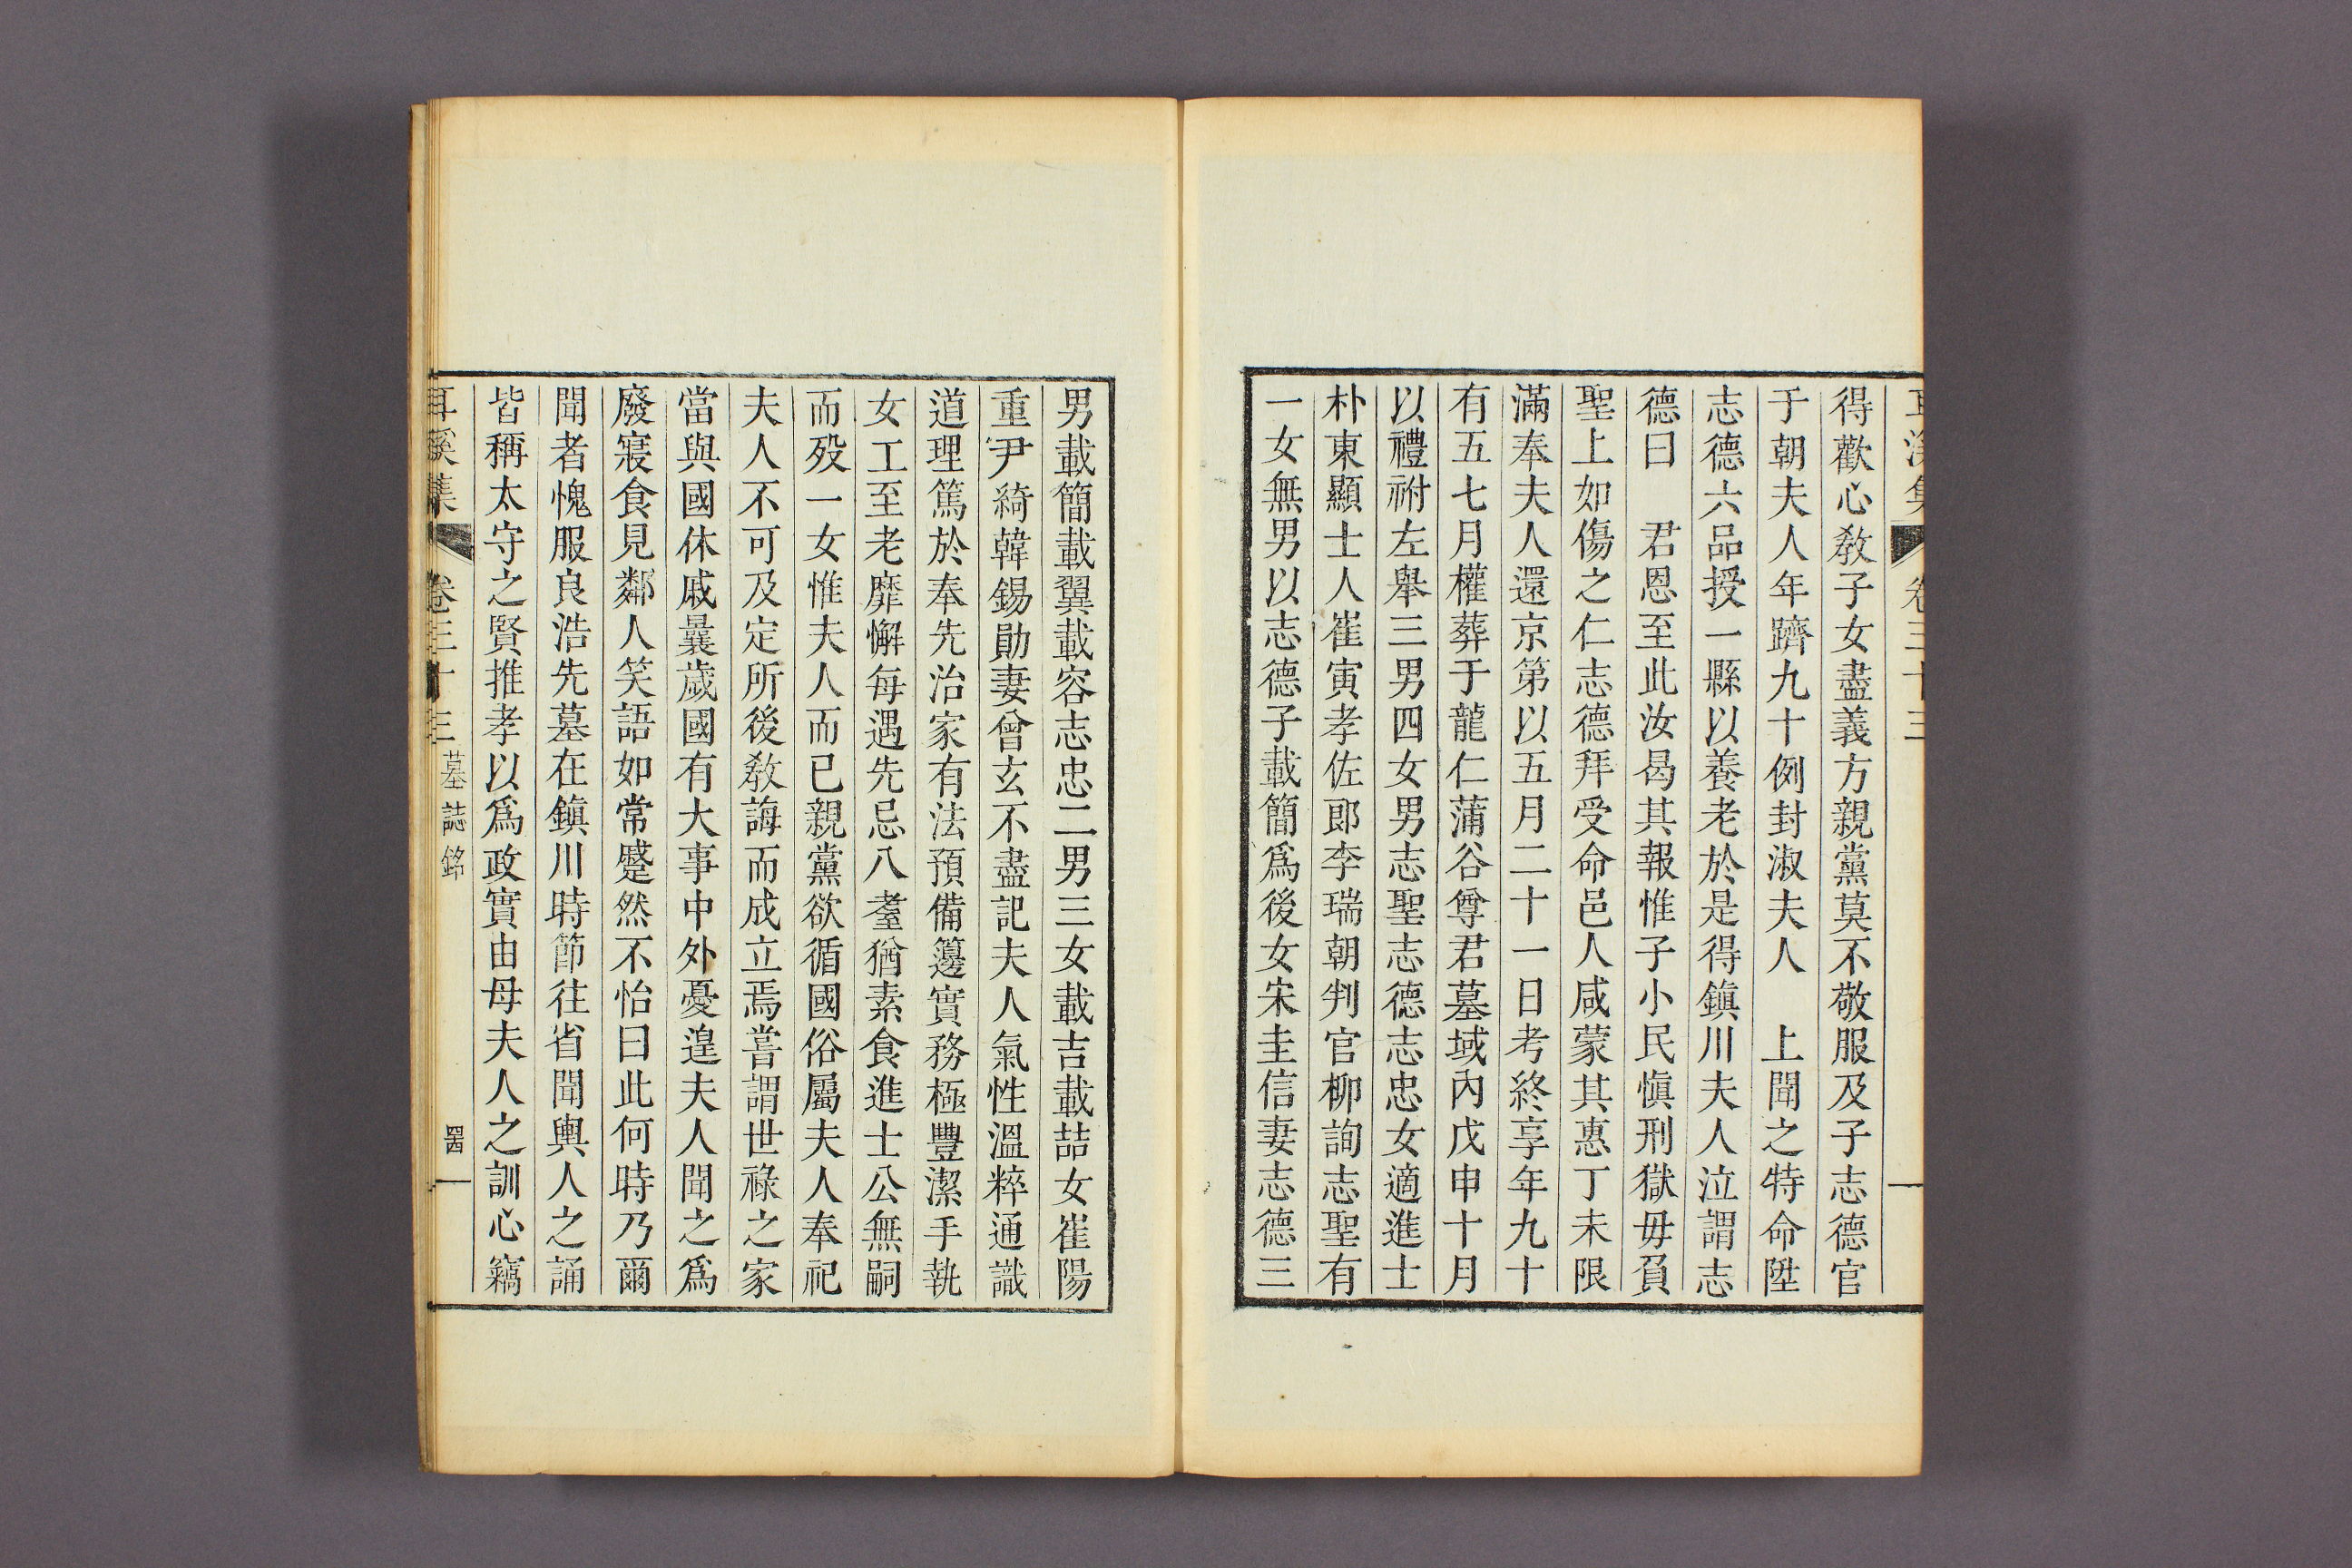 耳溪集 卷三十三
得歡心敎子女盡義方親黨莫不敬服及子志德官
于朝夫人年躋九十例封淑夫人　上聞之特命陞
志德六品授一縣以養老於是得鎭川夫人泣謂志
德曰　君恩至此汝曷其報惟子小民愼刑獄毋負
聖上如傷之仁志德拜受命邑人咸蒙其惠丁未限
滿奉夫人還京第以五月二十一日考終享年九十
有五七月權葬于龍仁蒲谷尊君墓域內戊申十月
以禮祔左舉三男四女男志聖志德志忠女適進士
朴東顯士人崔寅孝佐郎李瑞朝判官柳詢志聖有
一女無男以志德子載簡爲後女宋圭信妻志德三
男載簡載翼載容志忠二男三女載吉載喆女崔陽
重尹綺韓錫勛妻曾玄不盡記夫人氣性溫粹通識
道理篤於奉先治家有法預備籩實務極豐潔手執
女工至老靡懈每遇先忌八耋猶素食進士公無嗣
而歿一女惟夫人而已親黨欲循國俗屬夫人奉祀
夫人不可及定所後敎誨而成立焉嘗謂世祿之家
當與國休戚曩歲國有大事中外憂遑夫人聞之爲
廢寢食見鄰人笑語如常蹙然不怡曰此何時乃爾
聞者愧服良浩先墓在鎭川時節往省聞輿人之誦
皆稱太守之賢推孝以爲政實由母夫人之訓心竊
耳溪集 卷三十三 墓誌銘 四四